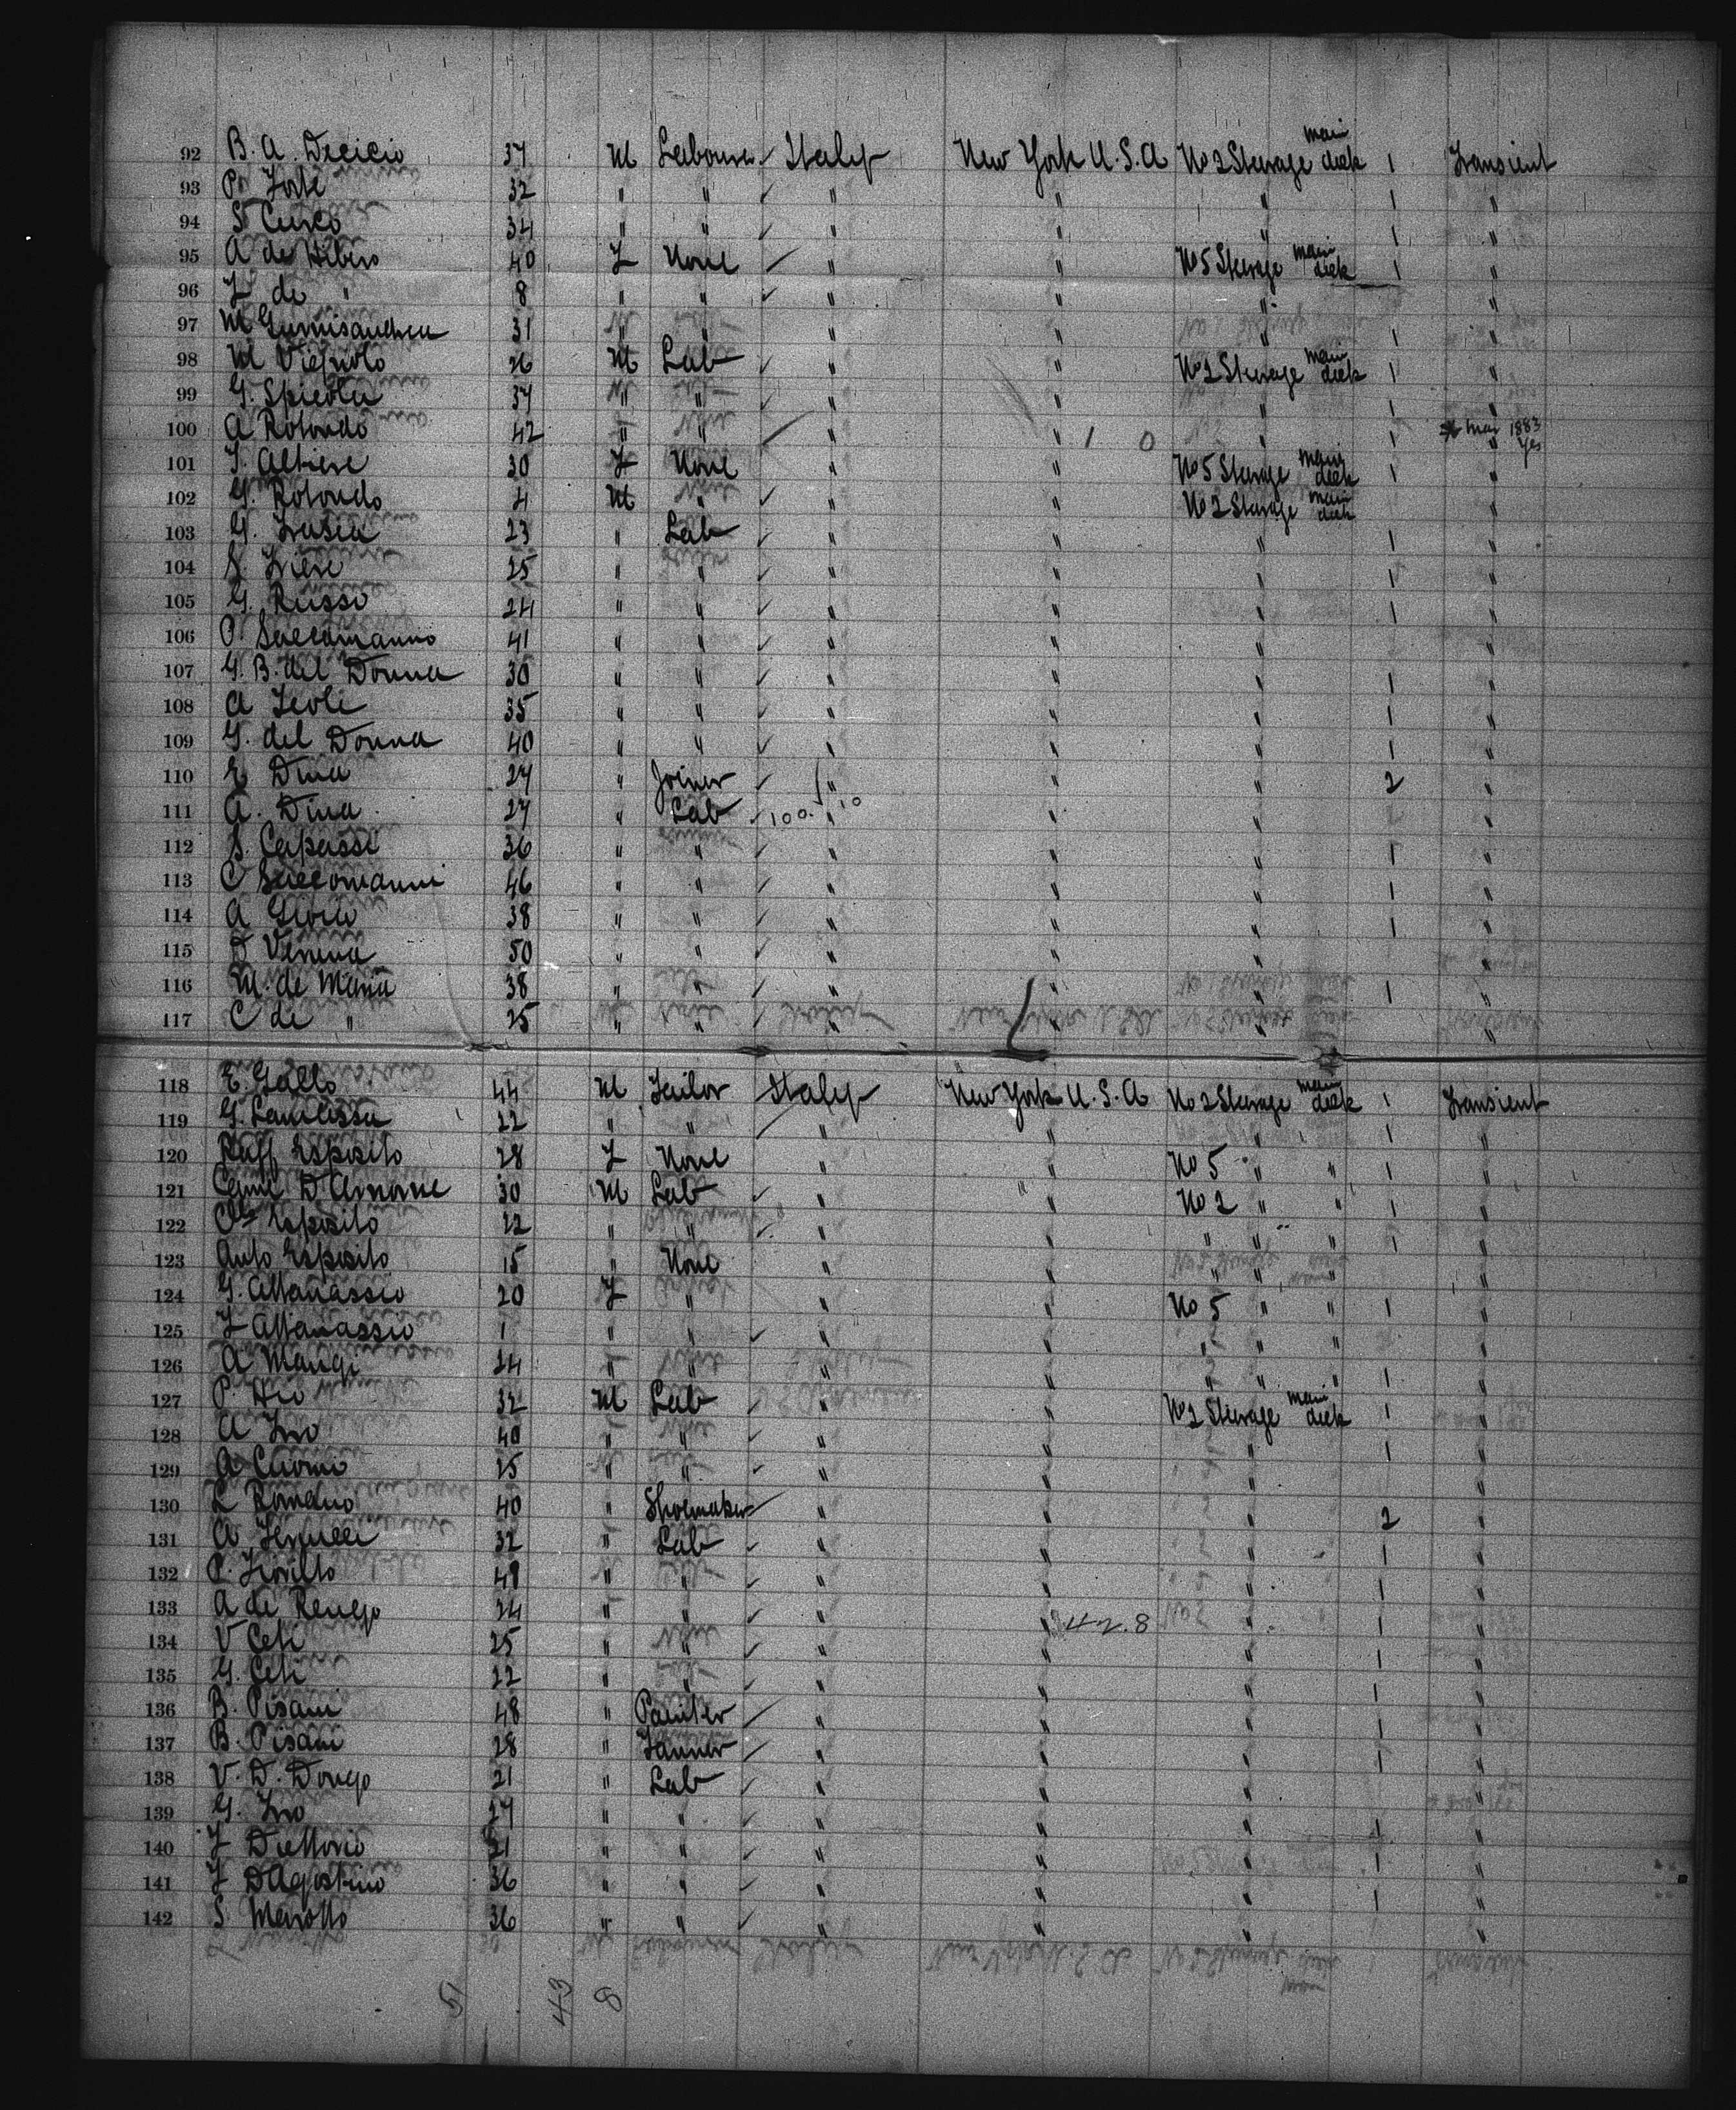 92 B. A. Decicio 37 M Labourer Italy New York U.S.A No 2 Steerage main deck 1 Transient
93 P. Forte 32 " " " " " 1 "
94 S Cusco 34 " " " " " 1 "
95 A de Libero 40 F None " " No 5 Steerage main deck 1 "
96 F de " 8 " " " " " "
97 M 31 " " " " " 1 "
98 M Vignolo 26 M Lab " " No 2 Steerage main deck 1 "
99 G. Spicola 37 " " " " " 1 "
100 A Rotondo 42 " " " 1 0 " 1 " Mar 1883 Yes
101 F. Altiere 30 F None " " No 5 Steerage main deck 1 "
102 G. Rotondo 4 M " " " No 2 Steerage main deck "
103 G. Frasca 23 " Lab " " " 1 "
104 25 " " " " " 1 "
105 G. Russo 24 " " " " " 1 "
106 P Saccomanno 41 " " " " " "
107 G. B. del Donna 30 " " " " " 1 "
108 A Feoli 35 " " " " " 1 "
109 G. del Donna 40 " " " " " 1 "
110 E Dina 27 " Joiner " " " 2 "
111 A. Dina 27 " Lab 100.10 " " " "
112 S. Capassi 36 " " " " " 1 "
113 C Saccomanni 46 " " " " " 1 "
114 A 38 " " " " " 1 "
115 Verena 50 " " " " " "
116 M. de Maria 38 " " " " " 1 "
117 C de " 25 " " " " " "
118 E. Gallo 44 M Tailor Italy New York U.S.A No 2 Steerage main deck 1 Transient
119 G. 22 " " " " " 1 "
120 Raff Esposito 28 F None " " No 5 " " 1 "
121 D'Arnone 30 M Lab " " No 2 " " 1 "
122 Esposito 22 " " " " " " " 1 "
123 Anto Esposito 15 " None " " " " " "
124 G. Attanassio 20 F " " " No 5 " " 1 "
125 F Attanassio 1 " " " " " " " "
126 A Mangi 24 " " " " " " " 1 "
127 P. 32 M Lab " " No 2 Steerage main deck 1 "
128 A 40 " " " " " 1 "
129 A Chiomi 25 " " " " " "
130 L Romano 40 " Shoemaker " " " 2 "
131 A 32 " Lab " " " 1 "
132 P. Fiorillo 49 " " " " " 1 "
133 A de Renzo 24 " " " " 42.8 " 1 "
134 V Ceti 25 " " " " " 1 "
135 G. Ceti 22 " " " " " 1 "
136 B. Pisani 48 " Painter " " " 1 "
137 B. Pisani 28 " Tanner " " " 1 "
138 V. D. Dongo 21 " Lab " " " "
139 G. 27 " " " " " 1 "
140 F 21 " " " " " 1 "
141 F D'Agostino 36 " " " " " 1 "
142 S. Marotto 36 " " " " " "
51 43 8